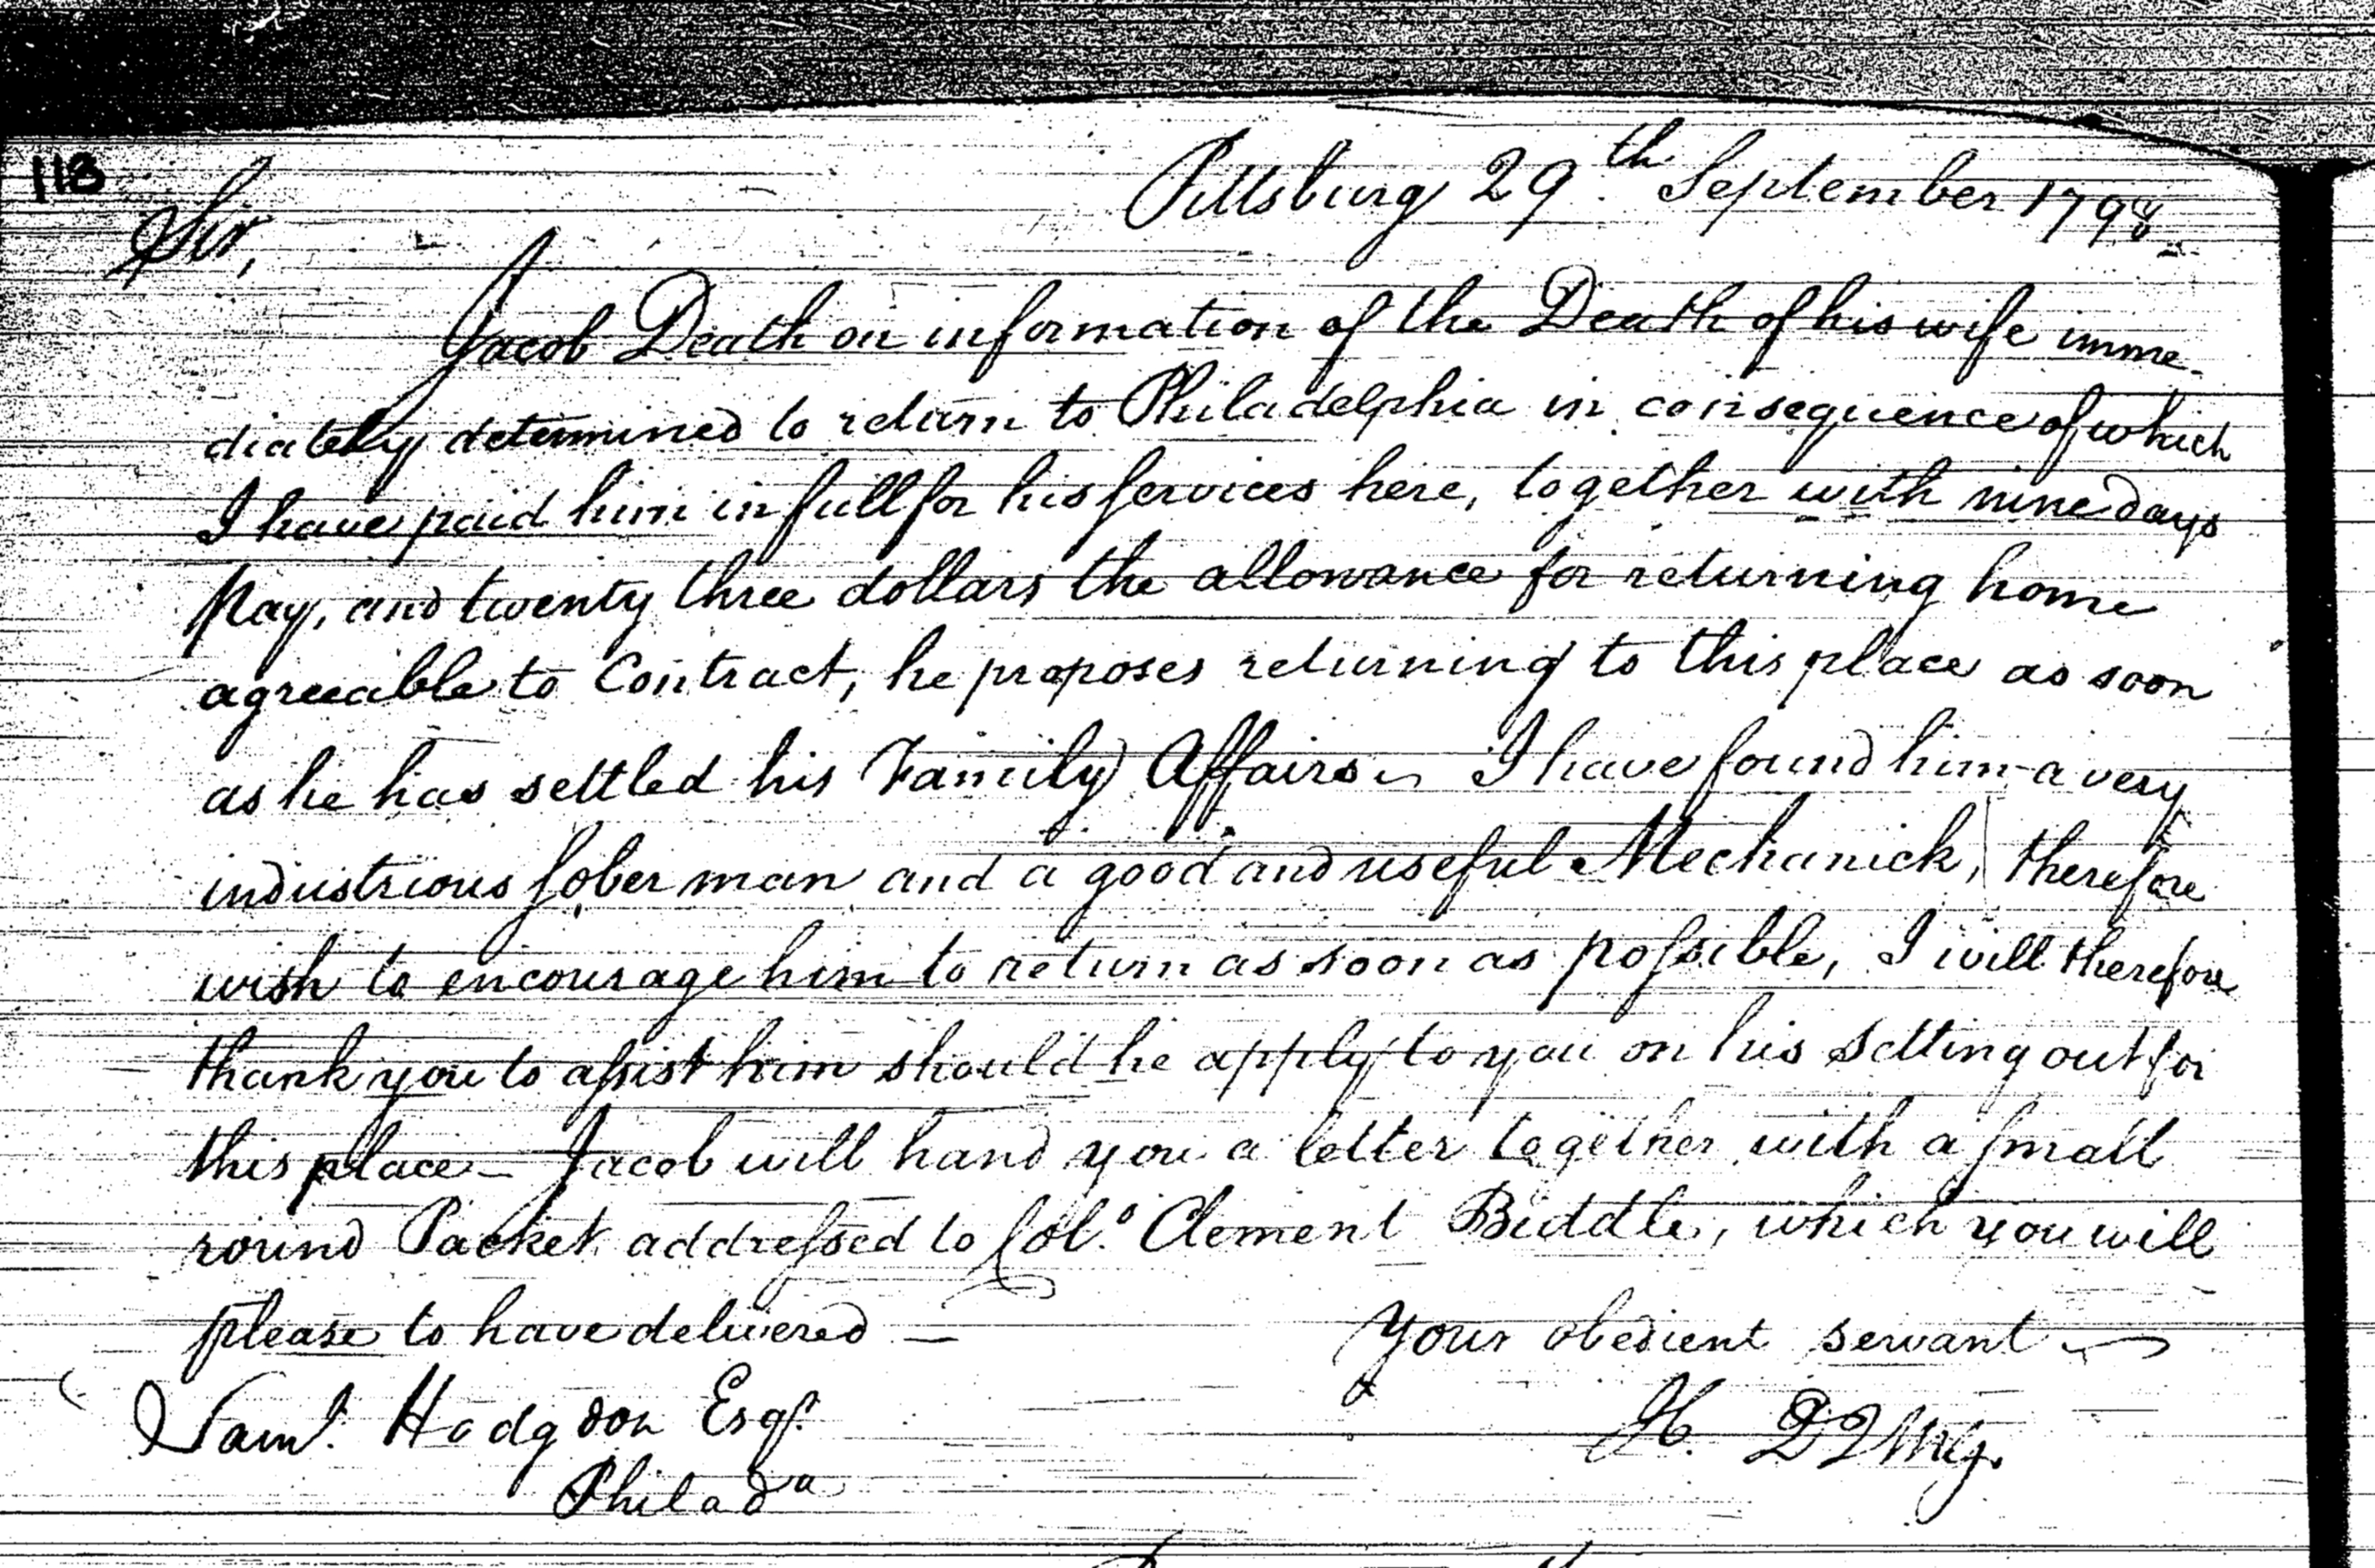 118
Pittsburg 29th September 1798
Sir,
Jacob Death on information of the Death of his wife imme-
diately determined to return to Philadelphia in consequence of which
I have paid him in full for his services here, together with nine days
Pay, and twenty three dollars the allowance for returning home
agreeable to Contract, he proposes returning to this place as soon
as he has settled his Family Affairs – I have found him a very
industrious sober man and a good and useful Mechanick, therefore
wish to encourage him to return as soon as possible, I will therefore
thank you to assist him should he apply to you on his setting out for
this place – Jacob will hand you a letter together with a small
round Packet addressed to Col.º Clement Biddle, which you will
please to have delivered –
Your obedient servant
Saml. Hodgdon Esqr.
H. DQMG.
Philada